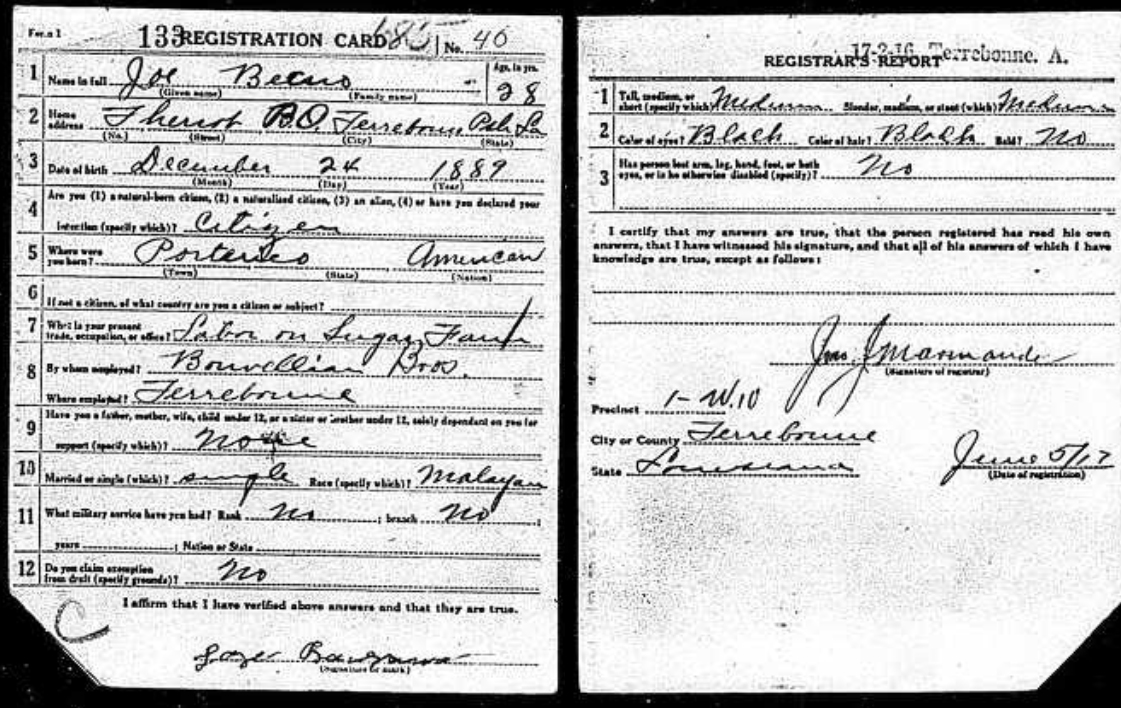 Form 1 133 REGISTRATION CARD No. 40
1 Name in full Joe (Given name) (Family name) Age, in yrs. 28
2 Home address Theriot P.O. Terrebonne Psh La
(No.) (Street) (City) (State)
3 Date of birth December 24 1889
(Month) (Day) (Year)
4 Are you (1) a natural-born citizen, (2) a naturalized citizen, (3) an alien, (4) or have you declared your
intention (specify which)? Citizen
5 Where were you born? American
(Town) (State) (Nation)
6 If not a citizen, of what country are you a citizen or subject?
7 What is your present trade, occupation, or office? Labor on Sugar Farm
8 By whom employed? Bros.
Where employed? Terrebonne
9 Have you a father, mother, wife, child under 12, or a sister or brother under 12, solely dependent on you for
support (specify which)? None
10 Married or single (which)? single Race (specify which)? Malayan
11 What military service have you had? Rank No ; branch No ;
years ; Nation or State
12 Do you claim exemption from draft (specify grounds)? No
I affirm that I have verified above answers and that they are true.
(Signature or mark)
17-2-16 Terrebonne. A.
REGISTRAR'S REPORT
1 Tall, medium, or short (specify which)? Medium Slender, medium, or stout (which)? Medium
2 Color of eyes? Black Color of hair? Black Bald? No
3 Has person lost arm, leg, hand, foot, or both eyes, or is he otherwise disabled (specify)? No
I certify that my answers are true, that the person registered has read his own
answers, that I have witnessed his signature, and that all of his answers of which I have
knowledge are true, except as follows:
(Signature of registrar)
Precinct 1-W.10
City or County Terrebonne
State Louisiana June 5/17
(Date of registration)